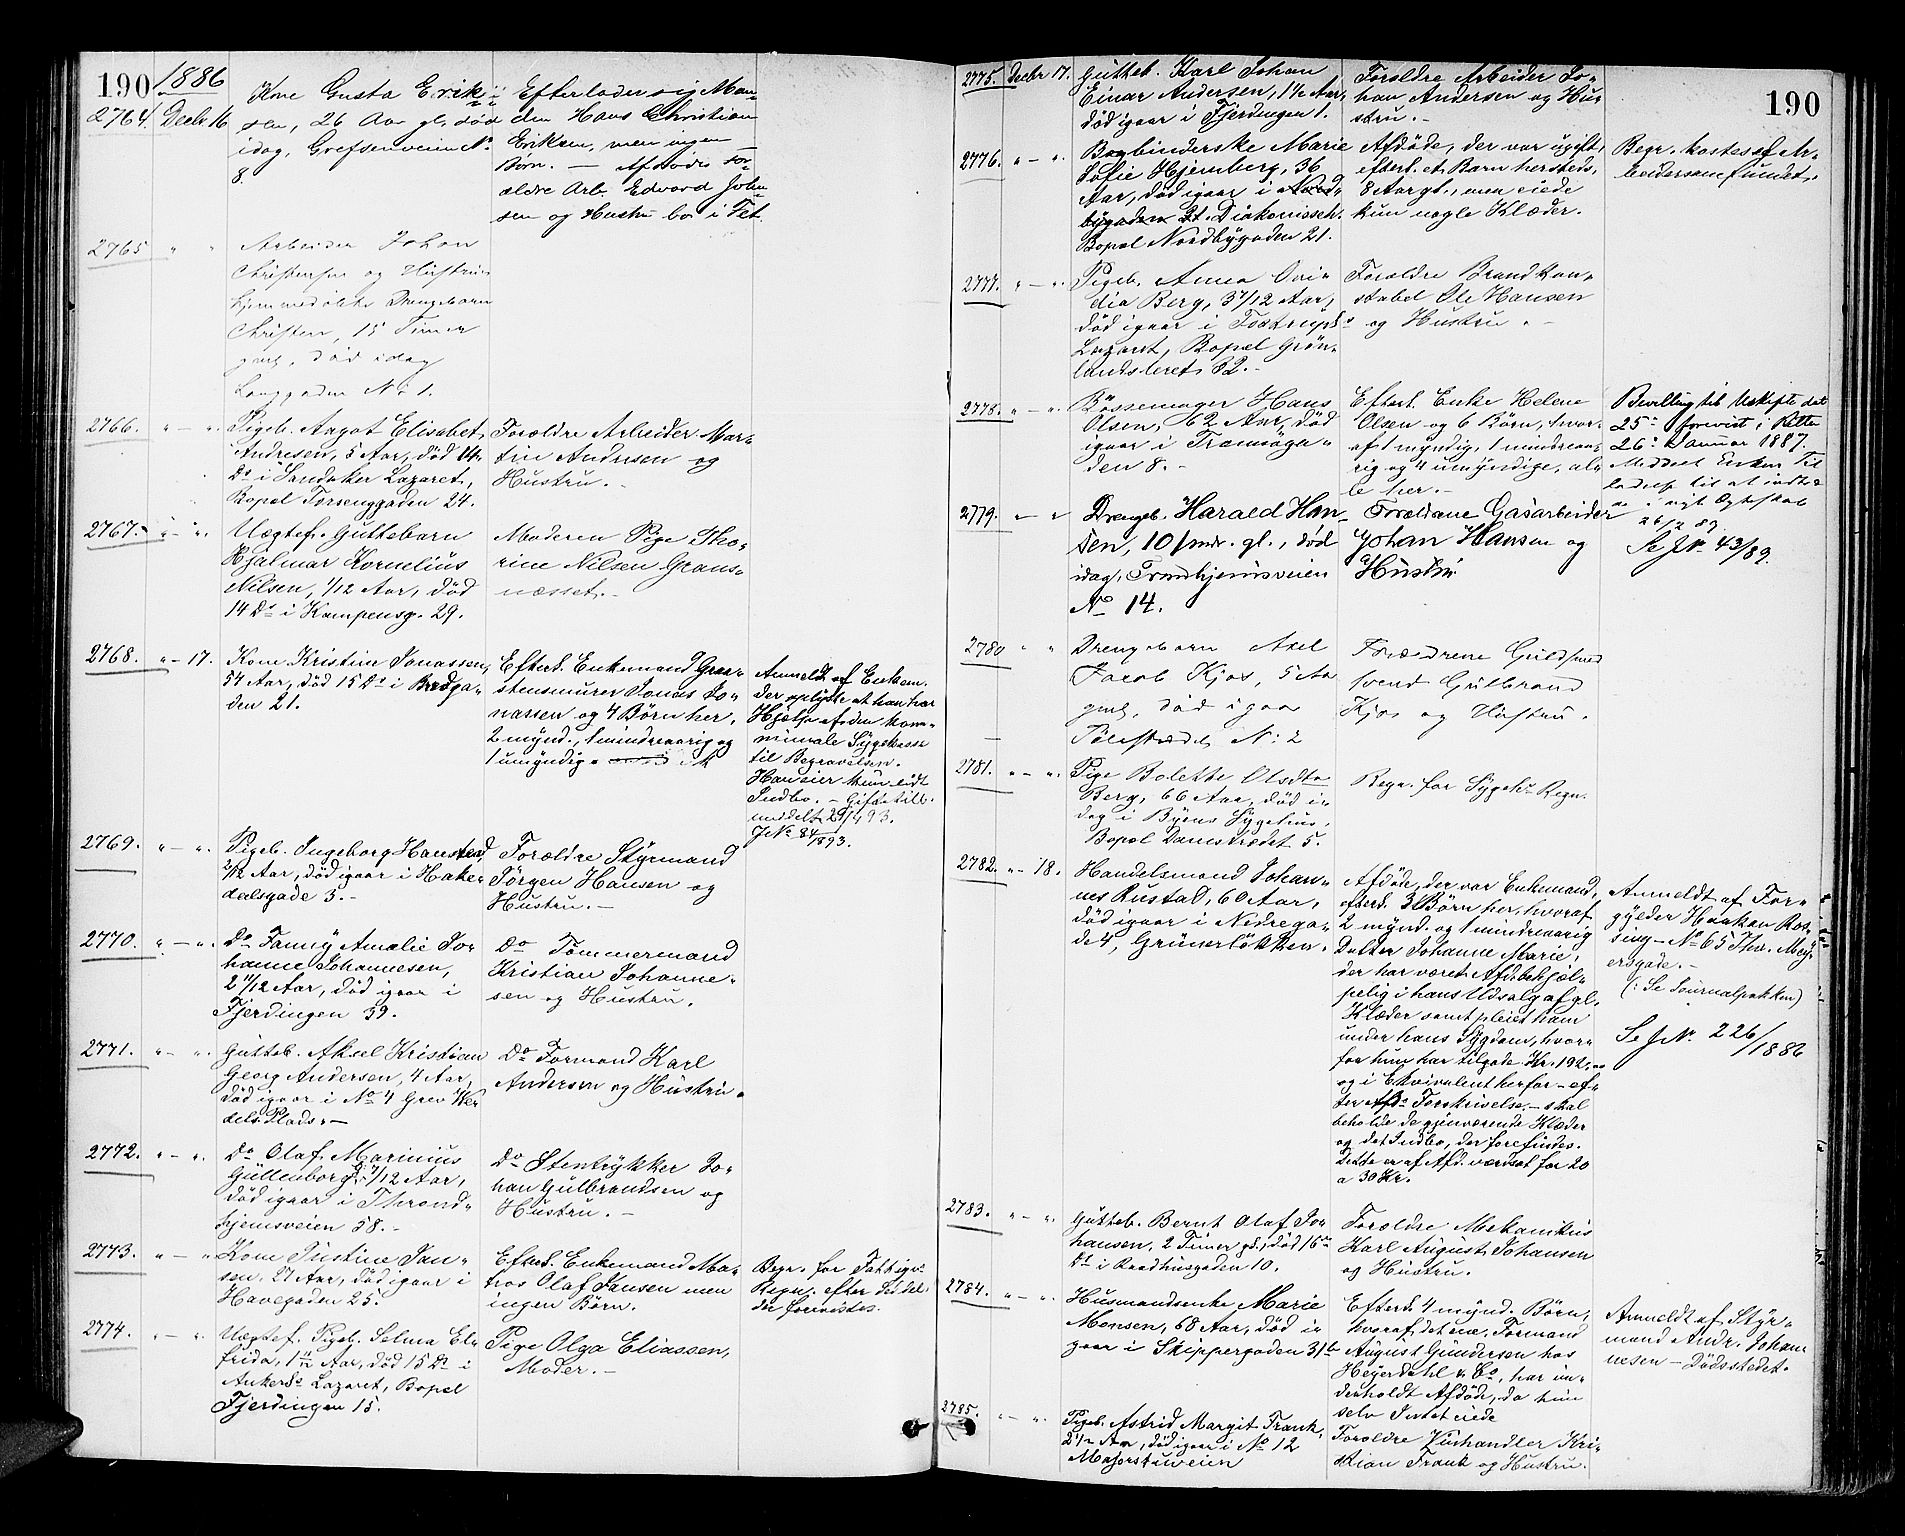 190 1886
2764. Decbr 16
Kone Gusta Erik-
sen, 26 Aar gl. død
idag, Grefsenveien No
8.
Efterlader sig Man-
den Hans Christian
Eriksen, men ingen
Børn. — Afdødes For-
ældre Arb. Edvard John-
sen og Hustru bor i Fet.
2765 " "
Arbeider Johan
Christensen og Hustrus
hjemmedøbte Drengebarn
Christen, 15 Timer
gml, død idag
Langgaden No 1.
2766. " — ".
Pigeb. Aagot Elisabet
Andresen, 5 Aar, død 14
Ds i Sandaker Lazaret,
Bopæl Torvenggaden 24.
Forældre Arbeider Mar-
tin Andresen og
Hustru. —
2767. " — ".
Uægtef. Guttebarn
Hjalmar Kornelius
Nilsen, 1/12 Aar, død
14 Ds i Kampensg. 29.
Moderen Pige Tho-
rine Nilsen Grans-
næsset. —
2768. " — 17.
Kone Kristine Jonassen,
54 Aar, død 15 Ds i Bredga-
den 21.
Efterl. Enkemand Graa-
stensmurer Jonas Jo-
nassen og 4 Børn her,
2 mynd., 1 mindreaarig og
1 umyndig.
Anmeldt af Enkem.
der oplyste at han har
Hjælp af den kom-
munale Sygekasse
til Begravelsen.
Han eier kun lidt
Indbo. — Giftetill.
meddelt 29/4 93.
J No 84/1893.
2769. " — ".
Pigeb. Ingeborg Hanstead,
2/12 Aar, død igaar i Hake-
dalsgade 3. —
Forældre Styrmand
Jørgen Hansen og
Hustru. —
2770. " — ".
Do Fanny Amalie Jo-
hanne Johannesen,
2 11/12 Aar, død igaar i
Fjerdingen 39.
Do Tømmermand
Kristian Johanne-
sen og Hustru.
2771. " — ".
Gutteb. Aksel Kristian
Georg Andersen, 4 Aar,
død igaar i No 4 Grev We-
dels Plads. —
Do Formand Karl
Andersen og Hustru.
2772. " — ".
Do Olaf Marinius
Gullenborg, 7/12 Aar,
død igaar i Thrond-
hjemsveien 58. —
Do Stentrykker Jo-
han Gulbrandsen og
Hustru. —
2773. " — "
Kone Justine Jan-
sen, 27 Aar, død igaar i
Havegaden 25.
Efterl. Enkemand Ma-
tros Olaf Jansen men
ingen Børn.
Begr. for Fattigv.
Regn. efter Seddel
der forevistes.
2774. " — ".
Uægtef. Pigeb. Selma El-
frida, 1 Aar, død 15 Ds i
Ankers Lazaret, Bopæl
Fjerdingen 15.
Pige Olga Eliassen,
Moder. —
190
2775. Decbr 17.
Gutteb. Karl Johan
Einar Andersen, 1 1/2 Aar,
død igaar i Fjerdingen 1.
Forældre Arbeider Jo-
han Andersen og Hu-
stru. —
2776. " — ".
Bogbinderske Marie
Sofie Hjernberg, 36
Aar, død igaar i Nord-
bygaden Diakonisseh.
Bopæl Nordbygaden 21.
Afdøde, der var ugift,
efterl. et Barn hersteds,
8 Aar gl., men eiede
kun nogle Klæder.
Begr. kostes af Ar-
beidersamfundet.
2777. " — ".
Pigeb. Anna Ovi-
dia Berg, 3 7/12 Aar,
død igaar i Tostrups
Lazaret, Bopæl Grøn-
landsleret 32. —
Forældre Brandkon-
stabel Ole Hansen
og Hustru. —
2778. " — ".
Bøssemager Hans
Olsen, 62 Aar, død
igaar i Tromsøga-
den 8. —
Efterl. Enke Helene
Olsen og 6 Børn, hvor-
af 1 myndig, 1 mindreaa-
rig og 4 umyndige, al-
le her. —
Bevilling til Uskifte dat
25de forevist i Retten
26de Januar 1887.
Meddelt Enken Til
ladelse til at indtræ
de i nyt Ægteskab
26/2 89.
Se J No 43/89.
2779. " — "
Drengeb. Harald Han-
sen, 10 mdr. gl., død
idag, Trondhjemsveien
No 14.
Forældrene Gasarbeider
Johan Hansen og
Hustru
2780 " "
Drengebarn Axel
Jacob Kjos, 5 Aar
gml, død igaar
Pilestrædet No 2
Forældrene Guldsmed
svend Gulbrand
Kjos og Hustru.
2781. " — ".
Pige Bolette Olsdtr
Berg, 66 Aar, død i-
dag i Byens Sygehus,
Bopæl Damstrædet 5.
Begr. for Sygehs Regn.
2782. " — 18.
Handelsmand Johan-
nes Rustad, 60 Aar,
død igaar i Nedrega-
de 4, Grünerløkken.
Afdøde, der var Enkemand,
efterl. 3 Børn her, hvoraf
2 mynd. og 1 mindreaarig
Datter Johanne Marie,
der har været Afd. behjæl-
pelig i hans Udsalg af gl.
Klæder samt pleiet ham
under hans Sygdom, hvor-
for hun har tilgode Kr. 192,00
og i Ekvivalent herfor — ef-
ter Afds Forskrivelse — skal
beholde de gjenværende Klæder
og det Indbo, der forefindes.
Dette er af Afd. værdsat for 20
a 30 Kr.
Anmeldt af For-
gylder Haakon Ros-
sing — No 65 Thv. Mey-
ersgade. —
(: Se Journalpakken)
Se J No 226/1886
2783. " — ".
Gutteb. Bernt Olaf Jo-
hansen, 2 Timer gl., død 16de
Ds i Raadhusgaden 10.
Forældre Mekanikus
Karl August Johansen
og Hustru.
2784. " — ".
Husmandsenke Marie
Monsen, 68 Aar, død i-
gaar i Skippergaden 31b
Efterl. 4 mynd. Børn,
hvoraf det ene, Formand
August Gundersen hos
Heyerdahl & Co, har un-
derholdt Afdøde, da hun
selv Intet eiede
Anmeldt af Styr-
mand Andr. Johan-
nesen — Dødsstedet.
2785. " — ".
Pigeb. Astrid Margit Frank,
2 1/2 Aar, død igaar i No 12
Majorstuveien
Forældre Vinhandler Kri-
stian Frank og Hustru.